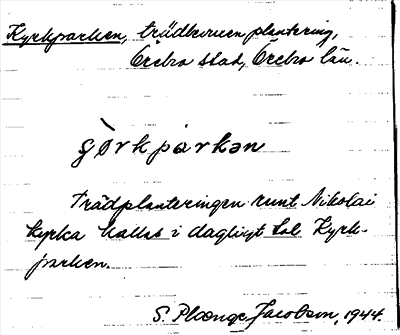 Kyrkparken, trädbevuxen plantering,
Örebro stad, Örebro län.
çørkparkən
Trädplanteringen runt Nikolai
kyrka kallas i dagligt tal Kyrk-
parken.
S. Plænge Jacobson, 1944.